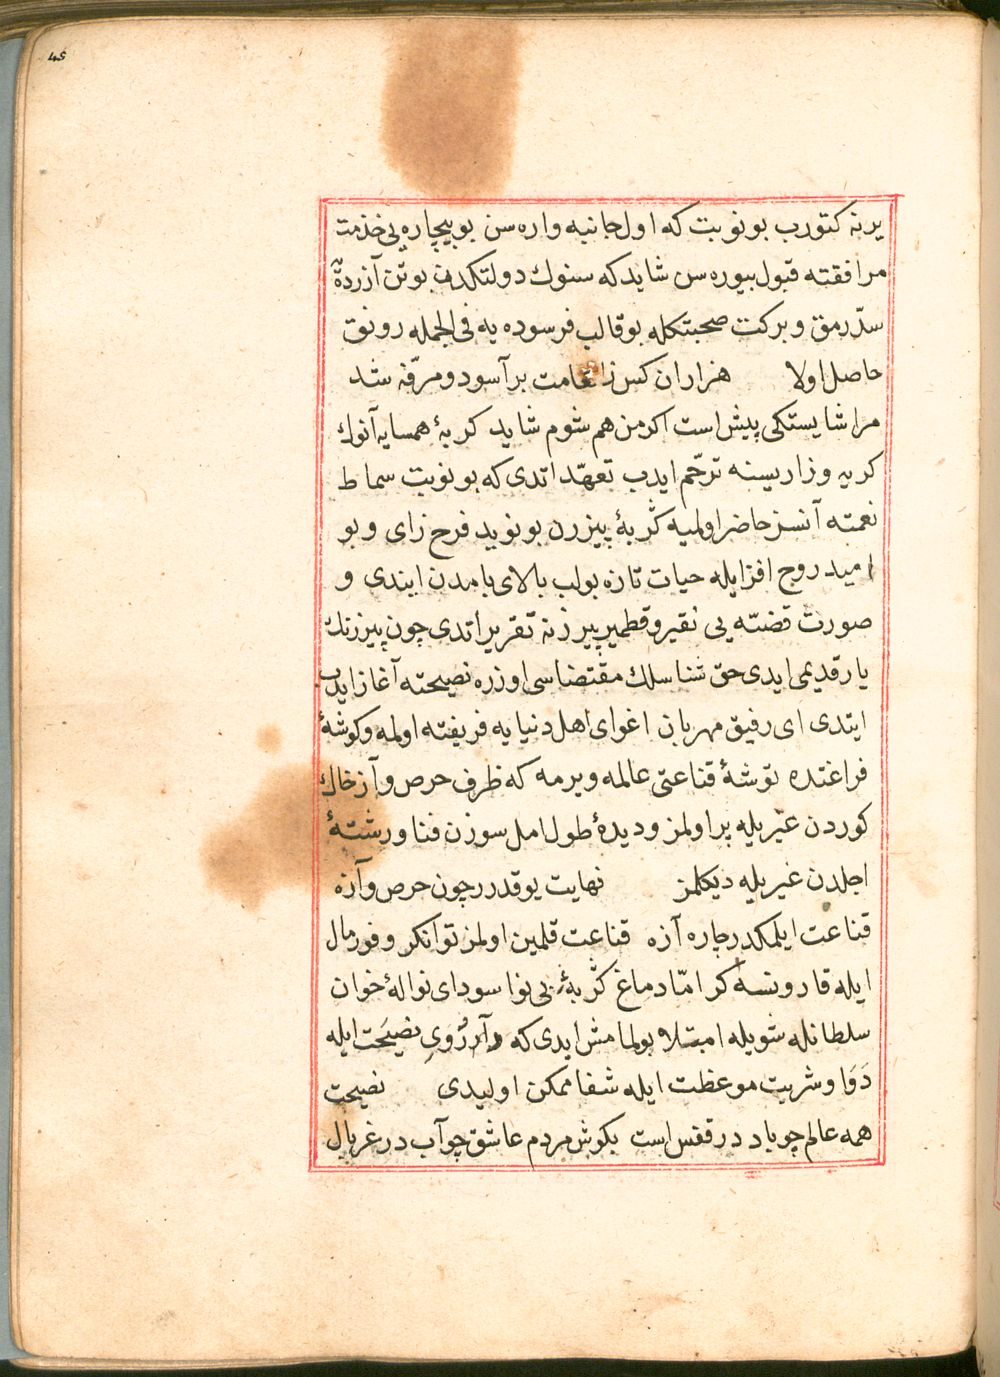 45
یرنه کتورب بو نوبت که اول جانبه واره سن بو بیچاره یی خذمت
مرافقته قبول بیوره سن شاید که سنوك دولتكدن بو تن آزرده
سدّ رمق و برکت صحبتکله بو قالب فرسوده یه فی الجمله رونق
حاصل اولا هزاران کس زانعامت برآسود و مرفّه شد
مرا شایستکی پیش است اکر من هم شوم شاید کربهٔ همسایه آنوك
کریه و زاریسنه ترحّم ایدب تعهّد اتدی که بو نوبت سماط
نعمته آنسز حاضر اولمیه کربهٔ پیرزن بو نوید فرح زای و بو
امید روح افزایله حیات تازه بولب بالای بامدن ایندی و
صورت قضیّه یی نقیر و قطمیر پیرزنه تقریر أتدی چون پیرزنك
یار قدیمی ایدی حق شناسلك مقتضاسی اوزره نصیحته آغاز ایدب
ایتدی ای رفیق مهربان اغوای اهل دنیایه فریفته اولمه و کوشهٔ
فراغتده توشهٔ قناعتی عالمه ویرمه که ظرف حرص و آز خاك
کوردن غیریله پر اولمز و دیدهٔ طول امل سوزن فنا و رشتهٔ
اجلدن غیریله دیکلمز نهایت یوقدر چون حرص و آزه
قناعت ایلمکدر چاره آزه قناعت قلمین اولمز توانکر وفور مال
ایله قارونسه کر امّا دماغ کربهٔ بی نوا سودای نوالهٔ خوان
سلطانله شویله امبتلا بولمامش ایدی که داروی نصیحت ایله
دوا و شربت موعظت ایله شفا ممکن اولیدی نصیحت
همه عالم چو باد در قفس است بکوش مردم عاشق چو آب در غربال